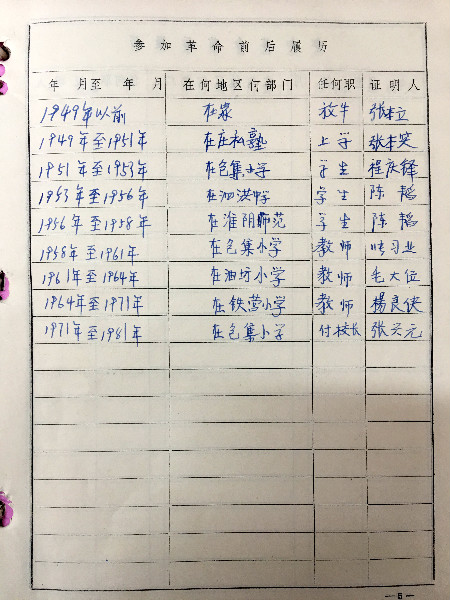 参加革命前后履历
年 月至 年 月 在何地区何部门 任何职 证明人
1949年以前 在家 放牛 张立
1949年至1951年 在庄私塾 上学 张本笑
1951年至1953年 在包集小学 学生 程庆铎
1953年至1956年 在泗洪中学 学生 陈韬
1956年至1958年 在淮阴师范 学生 陈韬
1958年至1961年 在包集小学 教师 习业
1961年至1964年 在油坊小学 教师 毛大位
1964年至1971年 在铁营小学 教师 楊良
1971年至1981年 在包集小学 付校长 张兴元
—5—